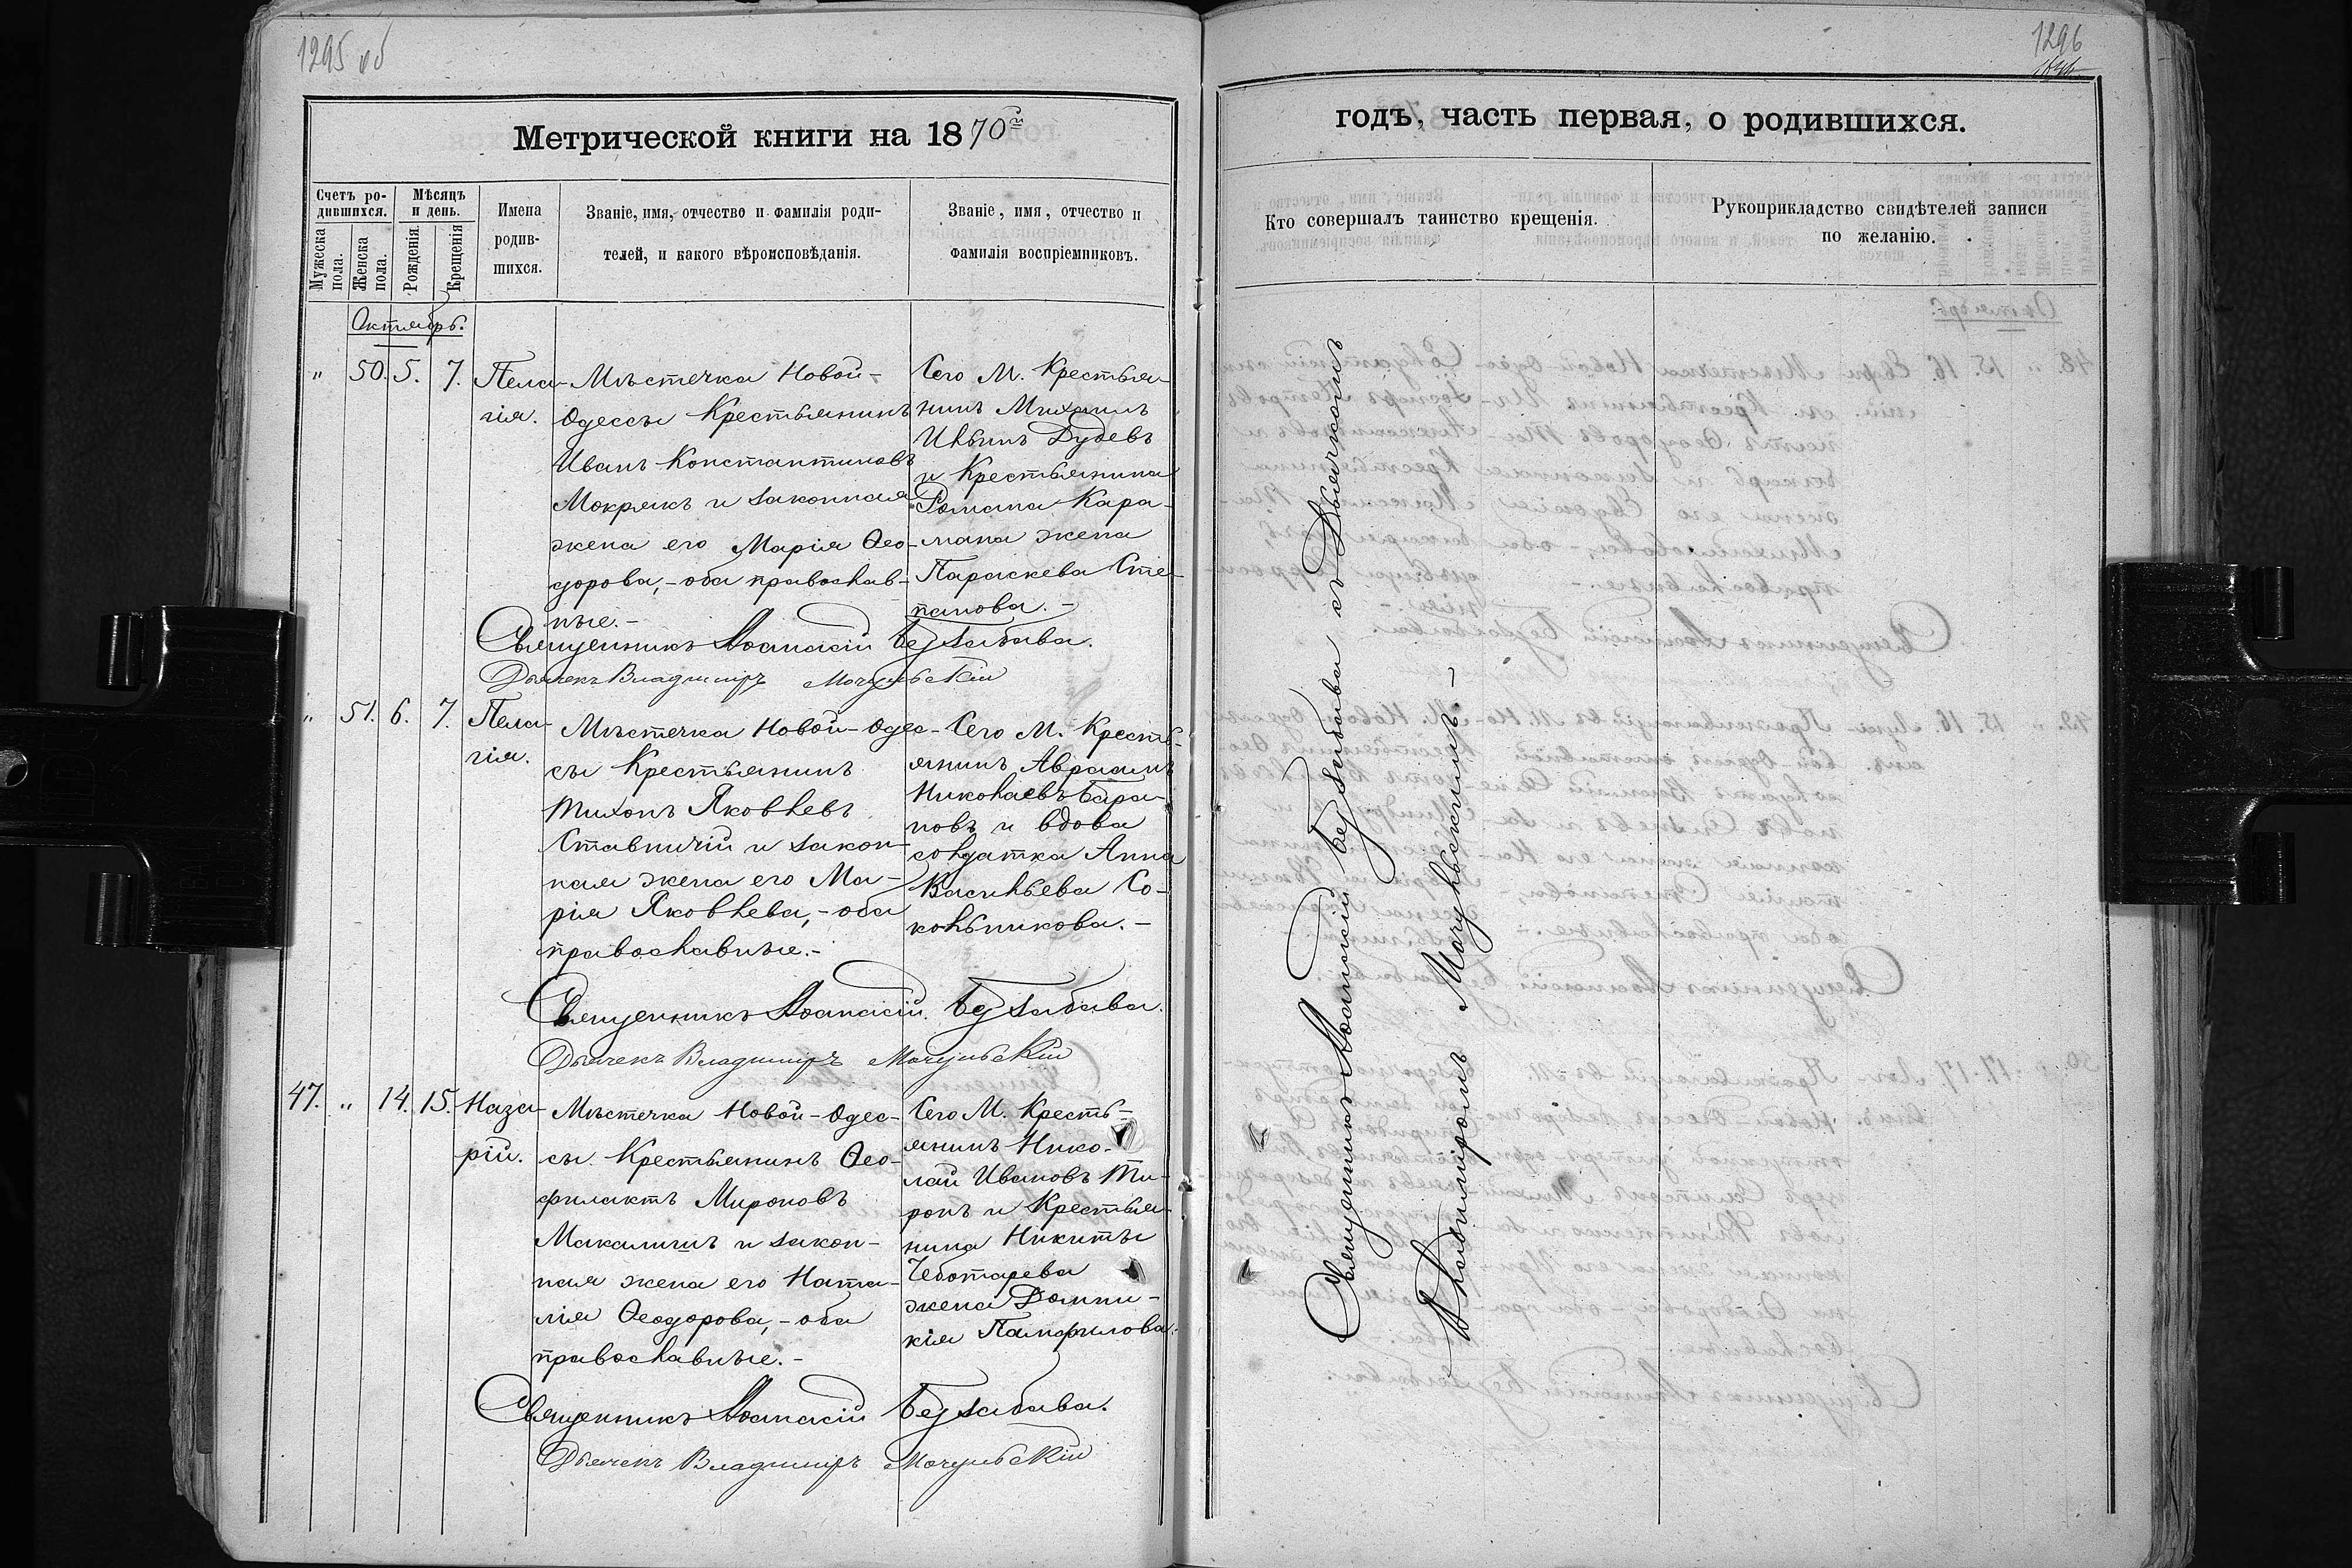 1295 об
Метрической книги на 1870й
Счетъ родившихся.
Мужеска пола.
Женска пола.
Мѣсяцъ и день.
Рожденія.
Крещенія
Имена родив-
шихся.
Званіе, имя, отчество и фамилія роди-
телей, и какого вѣроисповѣданія.
Званіе, имя, отчество и
фамилія воспріемниковъ.
Октябрь.
" 50. 5. 7. Пела-
гія.
Мѣстечка Новой-
Одессы Крестьянинъ
Иванъ Константиновъ
Мокрякъ и законная
жена его Марія Ѳео-
дорова,- оба православ-
ные.-
Сего М. Крестья-
нинъ Михаилъ
Ильинъ Дубевъ
и Крестьянина
Романа Кара-
мана жена
Параскева Сте-
панова.-
Священникъ Аѳанасій Беззабава.
Дьячекъ Владимиръ Мочульскій
" 51. 6. 7. Пела-
гія.
Мѣстечка Новой-Одес-
сы Крестьянинъ
Тихонъ Яковлевъ
Ставничій и закон-
ная жена его Ма-
рія Яковлева,- оба
православные.-
Сего М. Кресть-
янинъ Авраамъ
Николаевъ Бара-
новъ и вдова
солдатка Анна
Васильева Со-
кольникова.-
Священникъ Аѳанасій Беззабава.
Дьячекъ Владимиръ Мочульскій
47. " 14. 15. Наза-
рій.
Мѣстечка Новой-Одес-
сы Крестьянинъ Ѳео-
филактъ Мироновъ
Макалишъ и закон-
ная жена его Ната-
лія Ѳеодорова,- оба
православные.-
Сего М. Кресть-
янинъ Нико-
лай Ивановъ Ти-
ронъ и Крестья-
нина Никиты
Чеботарева
жена Домни-
кія Памфилова.
Священникъ Аѳанасій Беззабава.
Дьячекъ Владимиръ Мочульскій
1296
годъ, часть первая, о родившихся.
Кто совершалъ таинство крещенія.
Рукоприкладство свидѣтелей записи
по желанію.
Священникъ Аѳанасій Беззабава съ Дьячкомъ
Владимиромъ Мочульскимъ.-